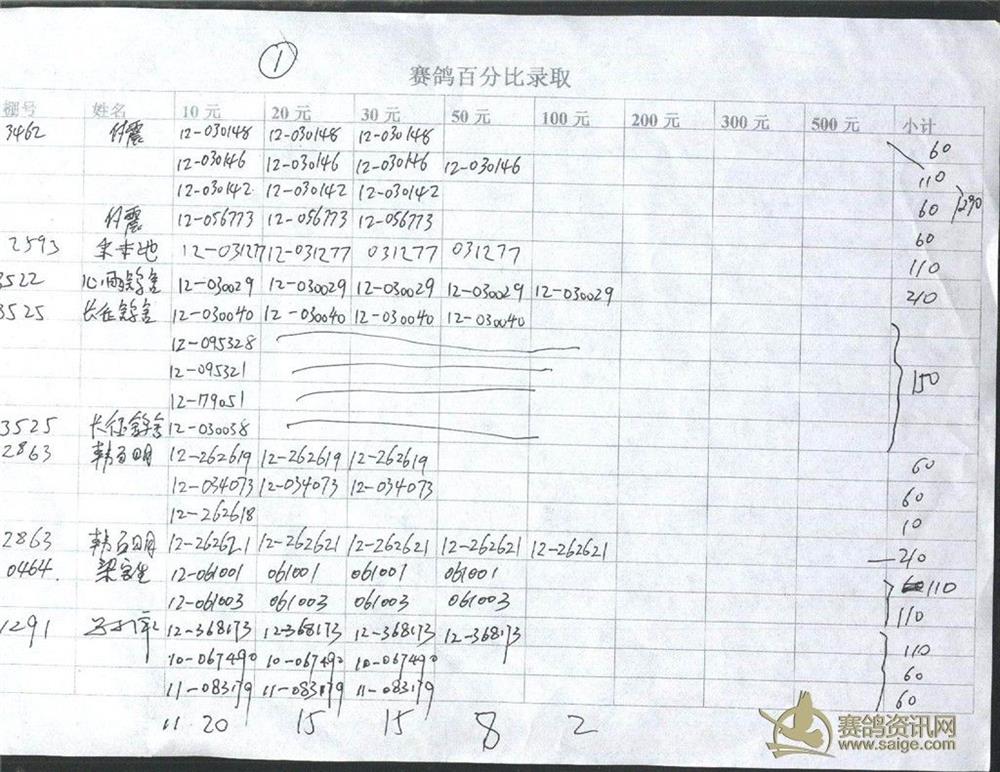 ①
赛鸽百分比录取
棚号 姓名 10 元 20 元 30 元 50 元 100 元 200 元 300 元 500 元 小计
3462 付震 12-030148 12-030148 12-030148 60
12-030146 12-030146 12-030146 12-030146 110
12-030142 12-030142 12-030142 60 290
付震 12-056773 12-056773 12-056773 60
2593 12-031277 12-031277 031277 031277 110
3522 心雨鸽舍 12-030029 12-030029 12-030029 12-030029 12-030029 210
3525 长征鸽舍 12-030040 12-030040 12-030040 12-030040
12-095328
12-095321 150
12-79051
3525 长征鸽舍 12-030038
2863 韩百明 12-262619 12-262619 12-262619 60
12-034073 12-034073 12-034073 60
12-262618 10
2863 韩百明 12-262621 12-262621 12-262621 12-262621 12-262621 210
0464. 12-061001 061001 061001 061001 110
12-061003 061003 061003 061003 110
1291 12-368173 12-368173 12-368173 12-368173 110
10-067490 10-067490 10-067490 60
11-083179 11-083179 11-083179 60
11 20 15 15 8 2
赛鸽资讯网
www.saige.com